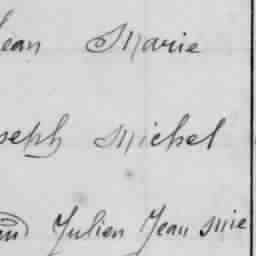 Jean Marie
Joseph Michel
Julien Jean Mie